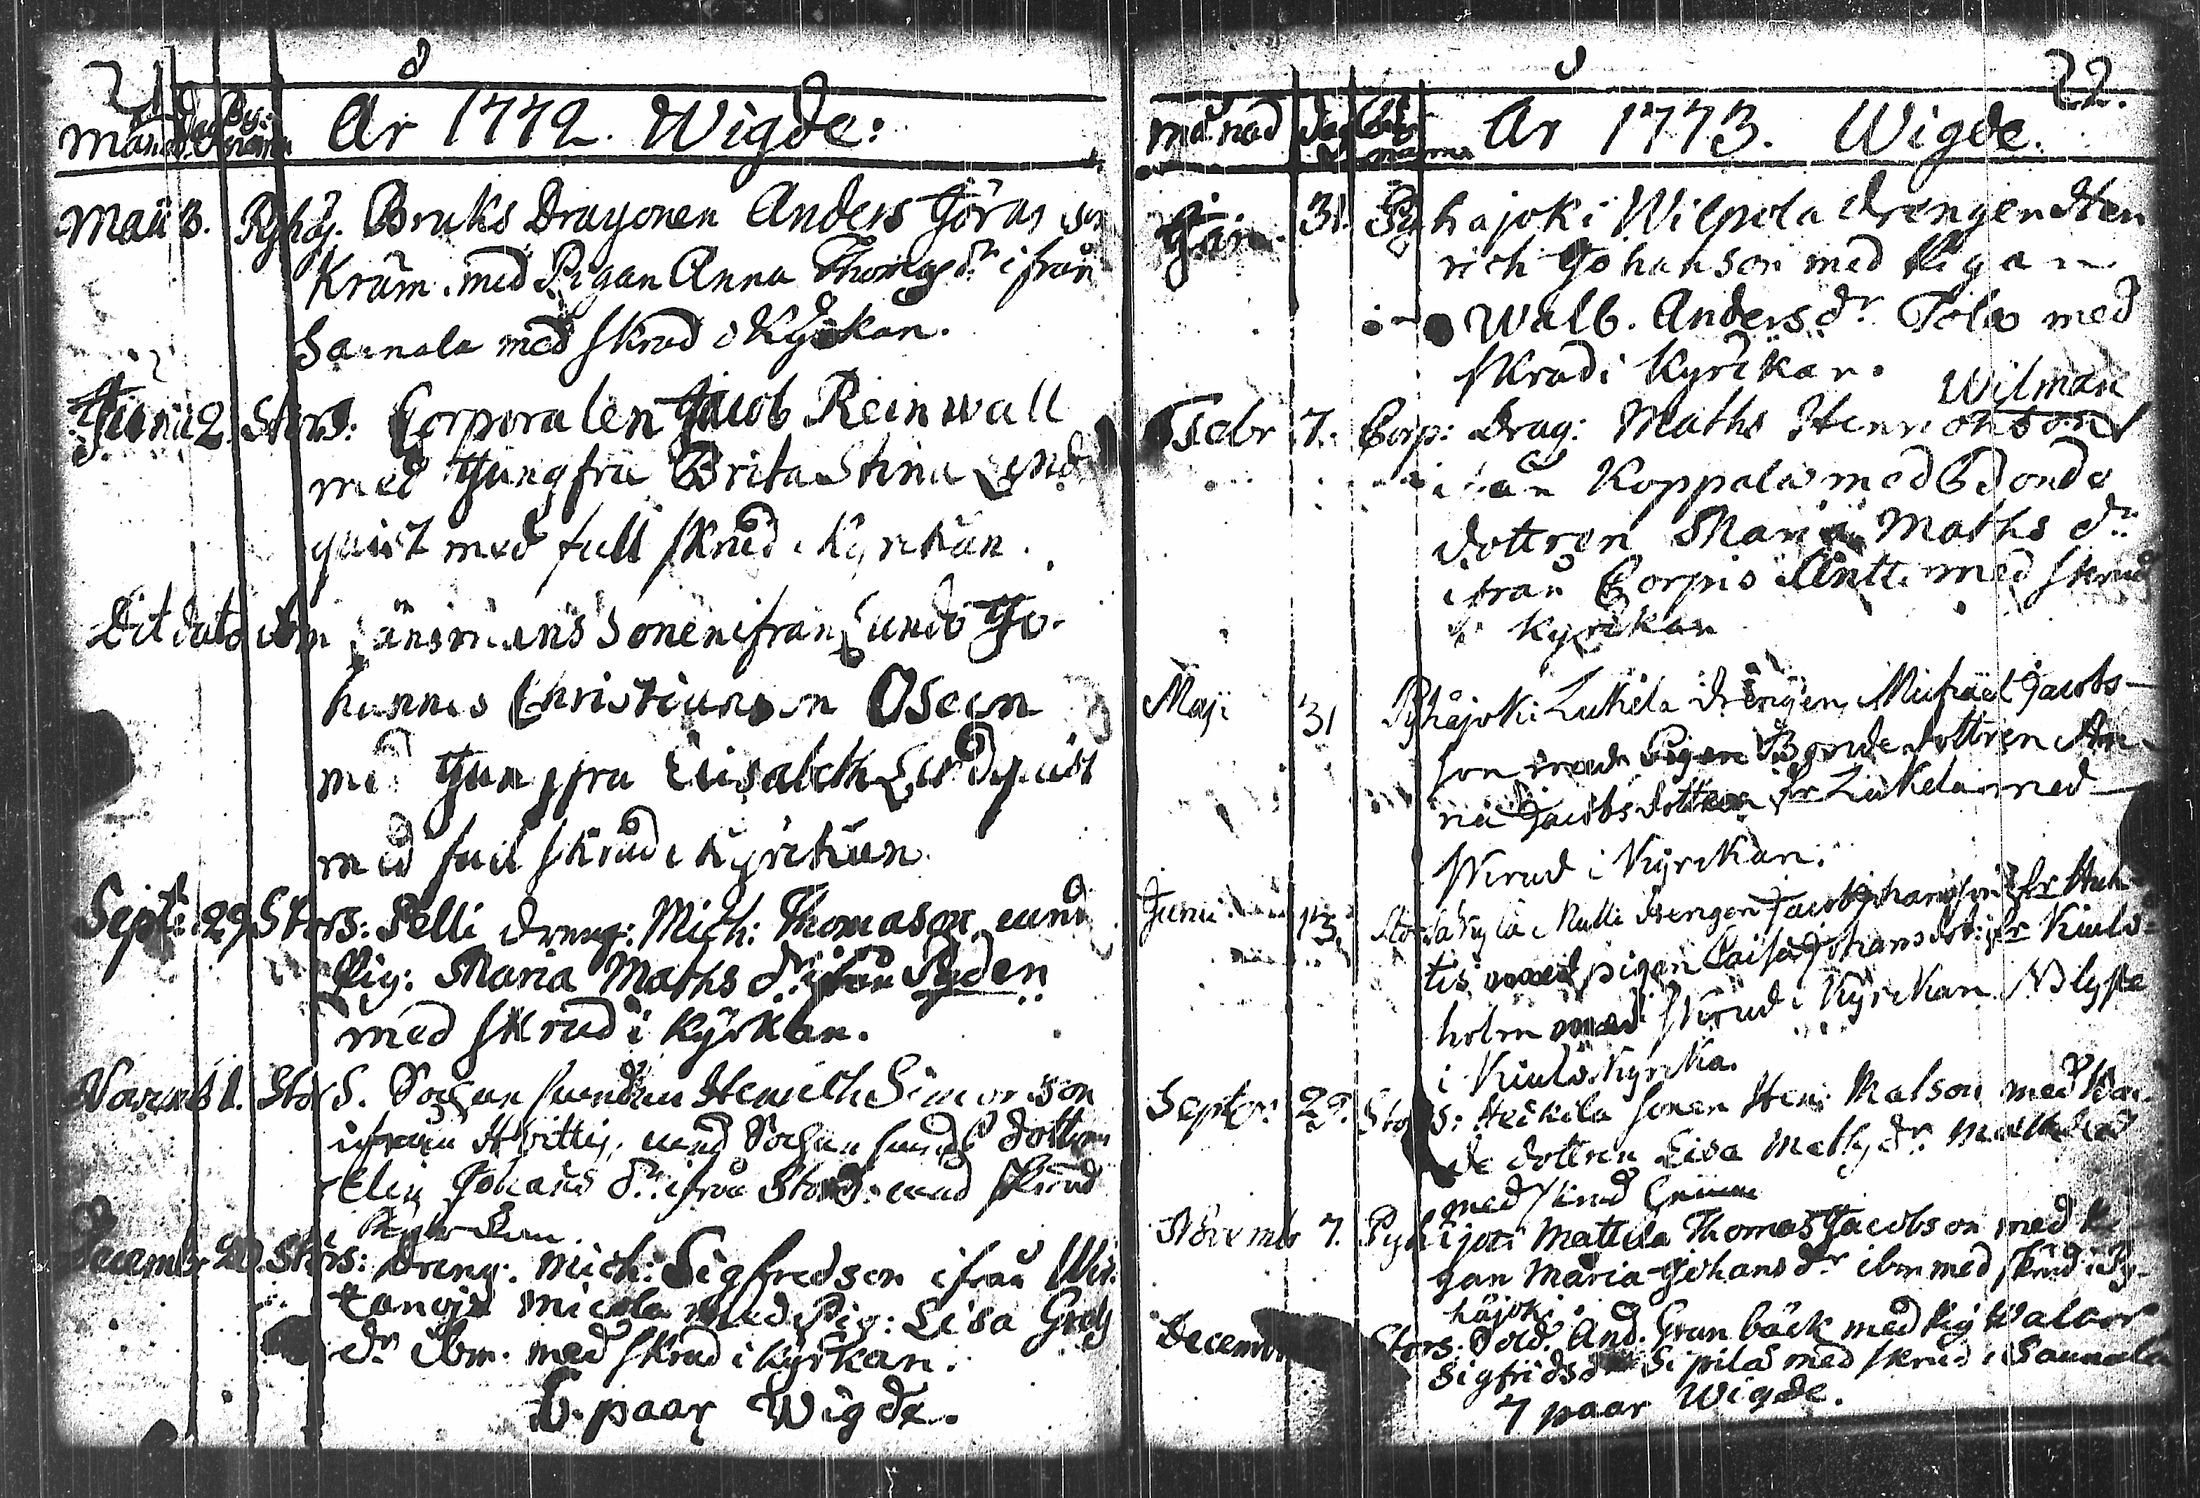 21
Månad Dag By: namn År 1772. Wigde:
Maii 3. Pyhäj. Bruks Dragonen Anders Görans son
Kräm. med Pigan Anna Thomas dr ifrån
Sannala med skrud i Kyrkan.
Junii 2. Stors: Corporalen Jacob Reinwall
med Jungfru Brita Stina Lind
quist med full skrud i Kyrckan.
Dit dato ibm Länsmans Sonen ifrån Lundo Jo-
hannes Christianson Oseen
med Jungfru Elisabeth Lindquist
med full skrud i Kyrckan.
Sept: 29. Stors: Pelli dreng: Mich: Thomason med
Pig: Maria Maths dr ifrån Pyden
med skrud i Kyrkan.
Novemb 1. Stors. Sochne Henrich Simonson
ifrån Hvittis, med Sochne dottren
Elin Johans dr ifrån Stors: med skrud
i Kyrkan.
Decembr 20. Stors: Dreng. Mich: Sigfredson ifrån
Micola med Pig: Lisa Grels
dr ibm. med skrud i Kyrkan.
6. paar Wigde.
22.
Månad dag namn År 1773. Wigde.
Jan. 31. Pyhäjoki Wilpola drengen Hen
rich Johanson med Pigan
Walb. Anders dr Tola med
skrud i Kyrckan.
Wilman
Febr 7. Corp: Drag: Maths Henrichson
ifrån Koppala med Bonde
dottren Maria Maths dr
ifrån Corpis Antti med skrud
i Kyrckan
Maji 31 Pyhäjoki Lukela drengen Michael Jacobs-
son med Pigan Bonde dottren
Jacobs dottren fr Lukela med
skrud i Kyrckan.
Junii 13. Nalli drengen Jacob Johansson fr Huh-
tis med pigan Caisa Johansdot: fr Kiulo-
holm med skrud i Kyrckan NB lyste
i Kiulo Kyrcka.
Septbr: 29. Stors: Heikila sonen Hen: Matson med Bon-
de dottren Lisa Maths dr
med skrud
Novembr 7. Pyhäjoki Mattila Thomas Jacobson med Pi-
gan Maria Johans dr ibm med skrud i Py-
häjoki
Decembr Stors. Sold. And. Granbäck med Pig Walbor
Sigfridsdr Sipilä med skrud i Sannala
7 paar Wigde.